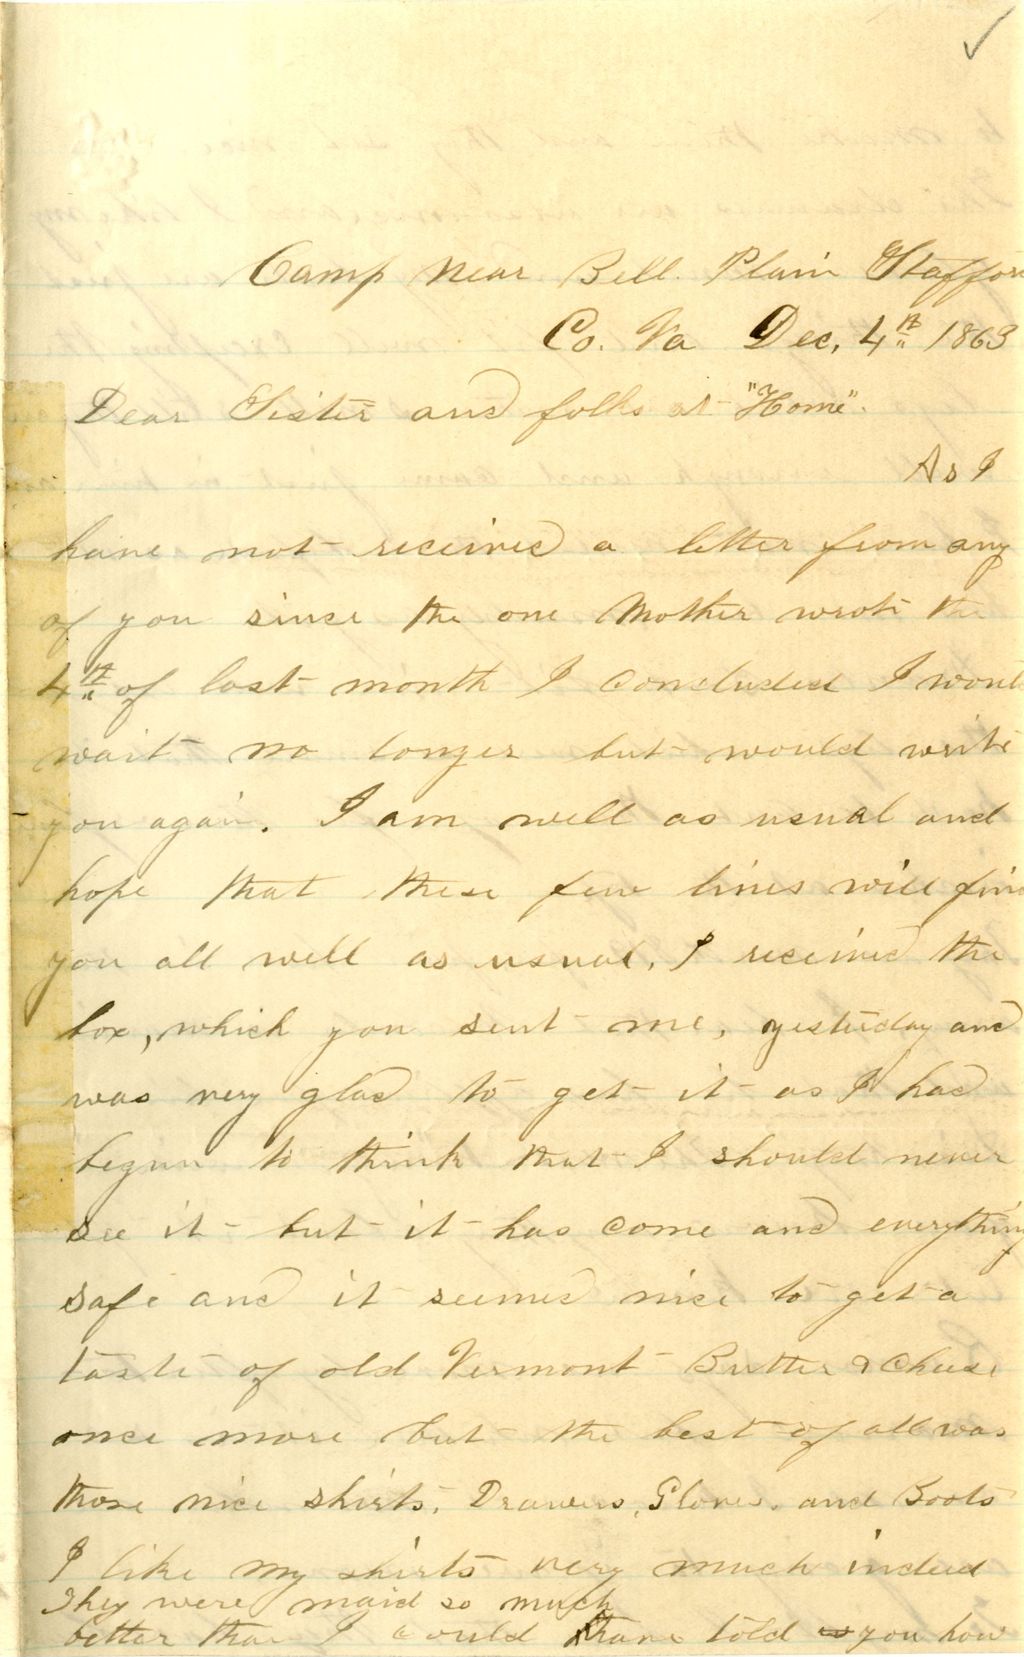 Camp Near Bell Plain Stafford
Co. Va Dec, 4th 1863
Dear Sister and folks at "Home".
As I
have not received a letter from any
of you since the one Mother wrote the
4th of last month I concluded I wont
wait no longer but would write
you again. I am well as usual and
hope that these few lines will find
you all well as usual. I received the
box, which you sent me, yesterday and
was very glad to get it as I had
begun to think that I should never
see it but it has come and everything
safe and it seemed nice to get a
taste of old Vermont Butter & Cheese
once more but the best of all was
those nice shirts, Drawers, Gloves, and Boots
I like my shirts very much indeed
They were maid so much
better than I could have told you how